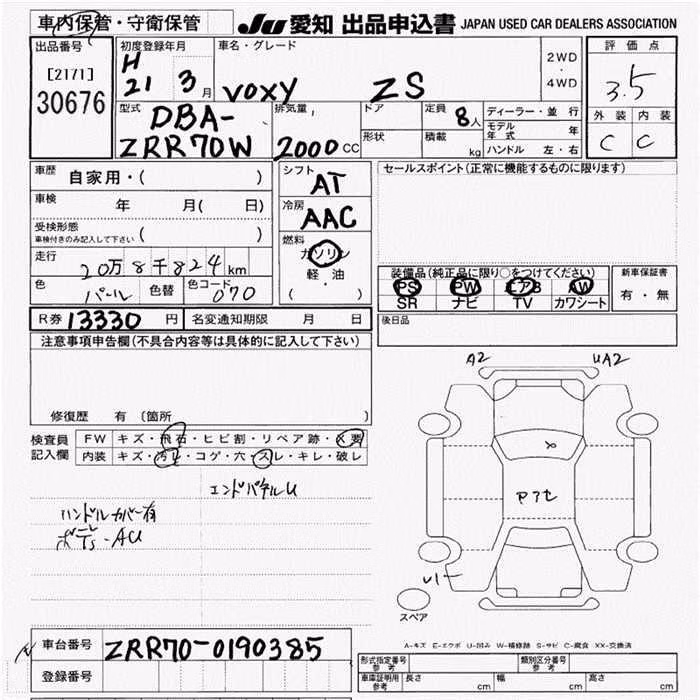 車内保管・守衛保管
JU 愛知 出品申込書 JAPAN USED CAR DEALERS ASSOCIATION
出品番号
[2171]
30676
初度登録年月
H
21 3 月
車名・グレード
VOXY ZS
2WD
・
4WD
評価点
3.5
外装 内装
C C
型式
DBA-
ZRR70W
排気量
2000 CC
ドア
形状
定員 8 人
積載 kg
ディーラー・並行
モデル年式 年
ハンドル 左・右
車歴 自家用・( )
車検 年 月( 日)
受検形態
車検付きのみ記入して下さい ( )
走行 20万8千824 km
色 パール 色替 色コード 070
シフト
AT
冷房
AAC
燃料
ガソリン
軽・油
( )
セールスポイント(正常に機能するものに限ります)
装備品(純正品に限り○をつけてください)
PS PW エアB AW
SR ナビ TV カワシート
新車保証書
有・無
R券 13330 円 名変通知期限 月 日
後日品
注意事項申告欄(不具合内容等は具体的に記入して下さい)
修復歴 有 〔箇所 〕
検査員
記入欄
FW キズ・飛石・ヒビ割・リペア跡・X要
内装 キズ・汚レ・コゲ・穴・スレ・キレ・破レ
エンドパネルU
ハンドルカバー有
A2 UA2
U1
スペア
A-キズ E-エクボ U-凹み W-補修跡 S-サビ C-腐食 XX-交換済
車台番号 ZRR70-0190385
登録番号
形式指定番号
参考
類別区分番号
参考
車庫証明用
参考
長さ cm 幅 cm 高さ cm